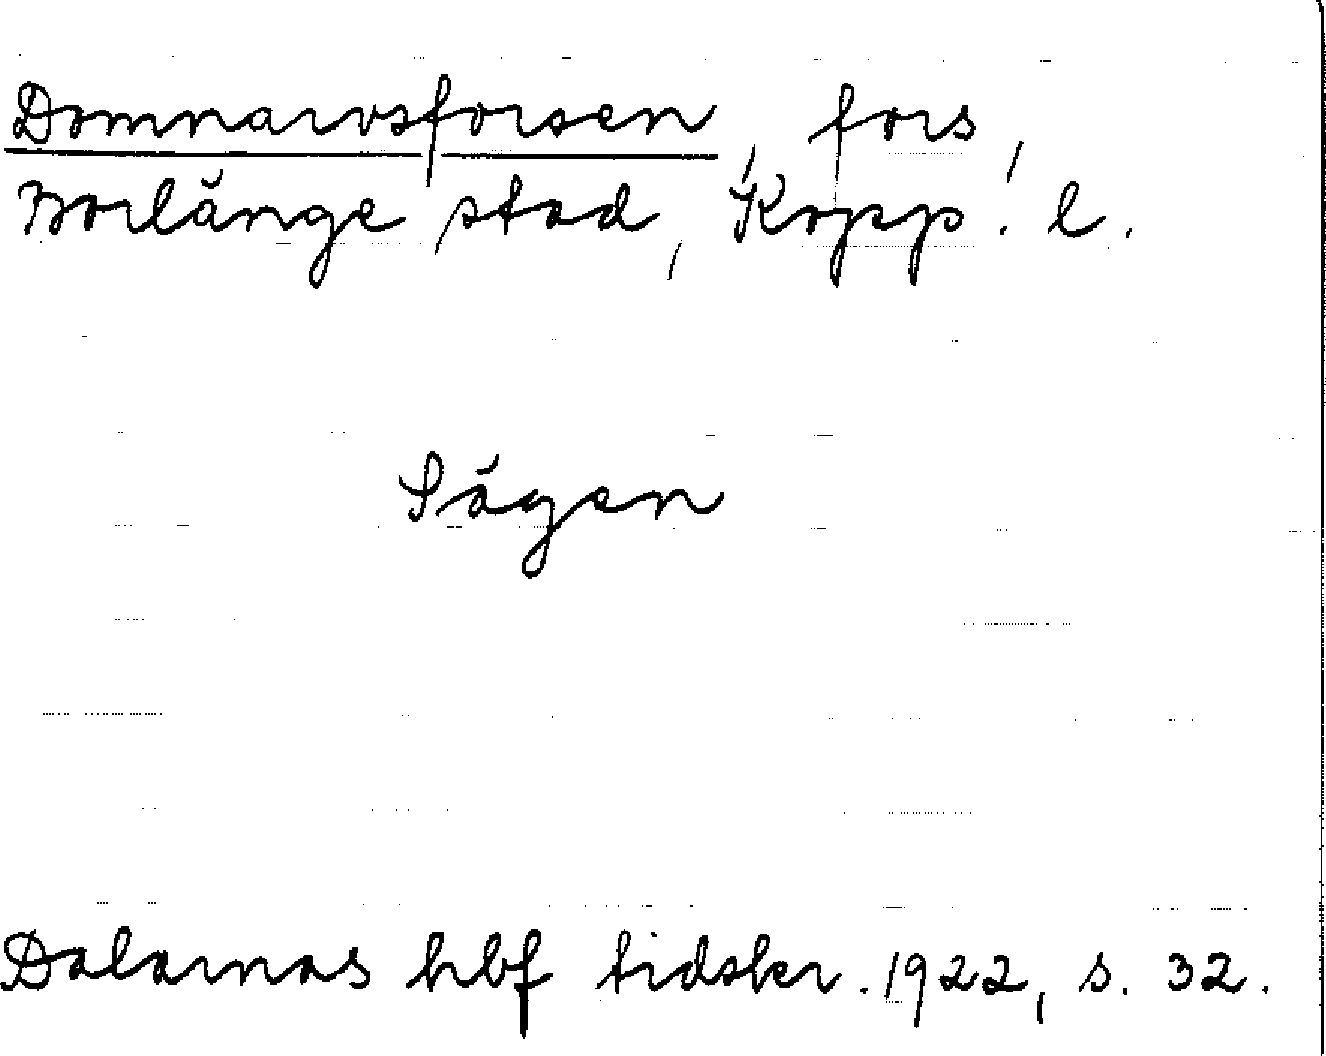 Domnarvsforsen, fors,
Borlänge stad, Kopp. l.
Sägen
Dalarnas hbf tidskr. 1922, s. 32.